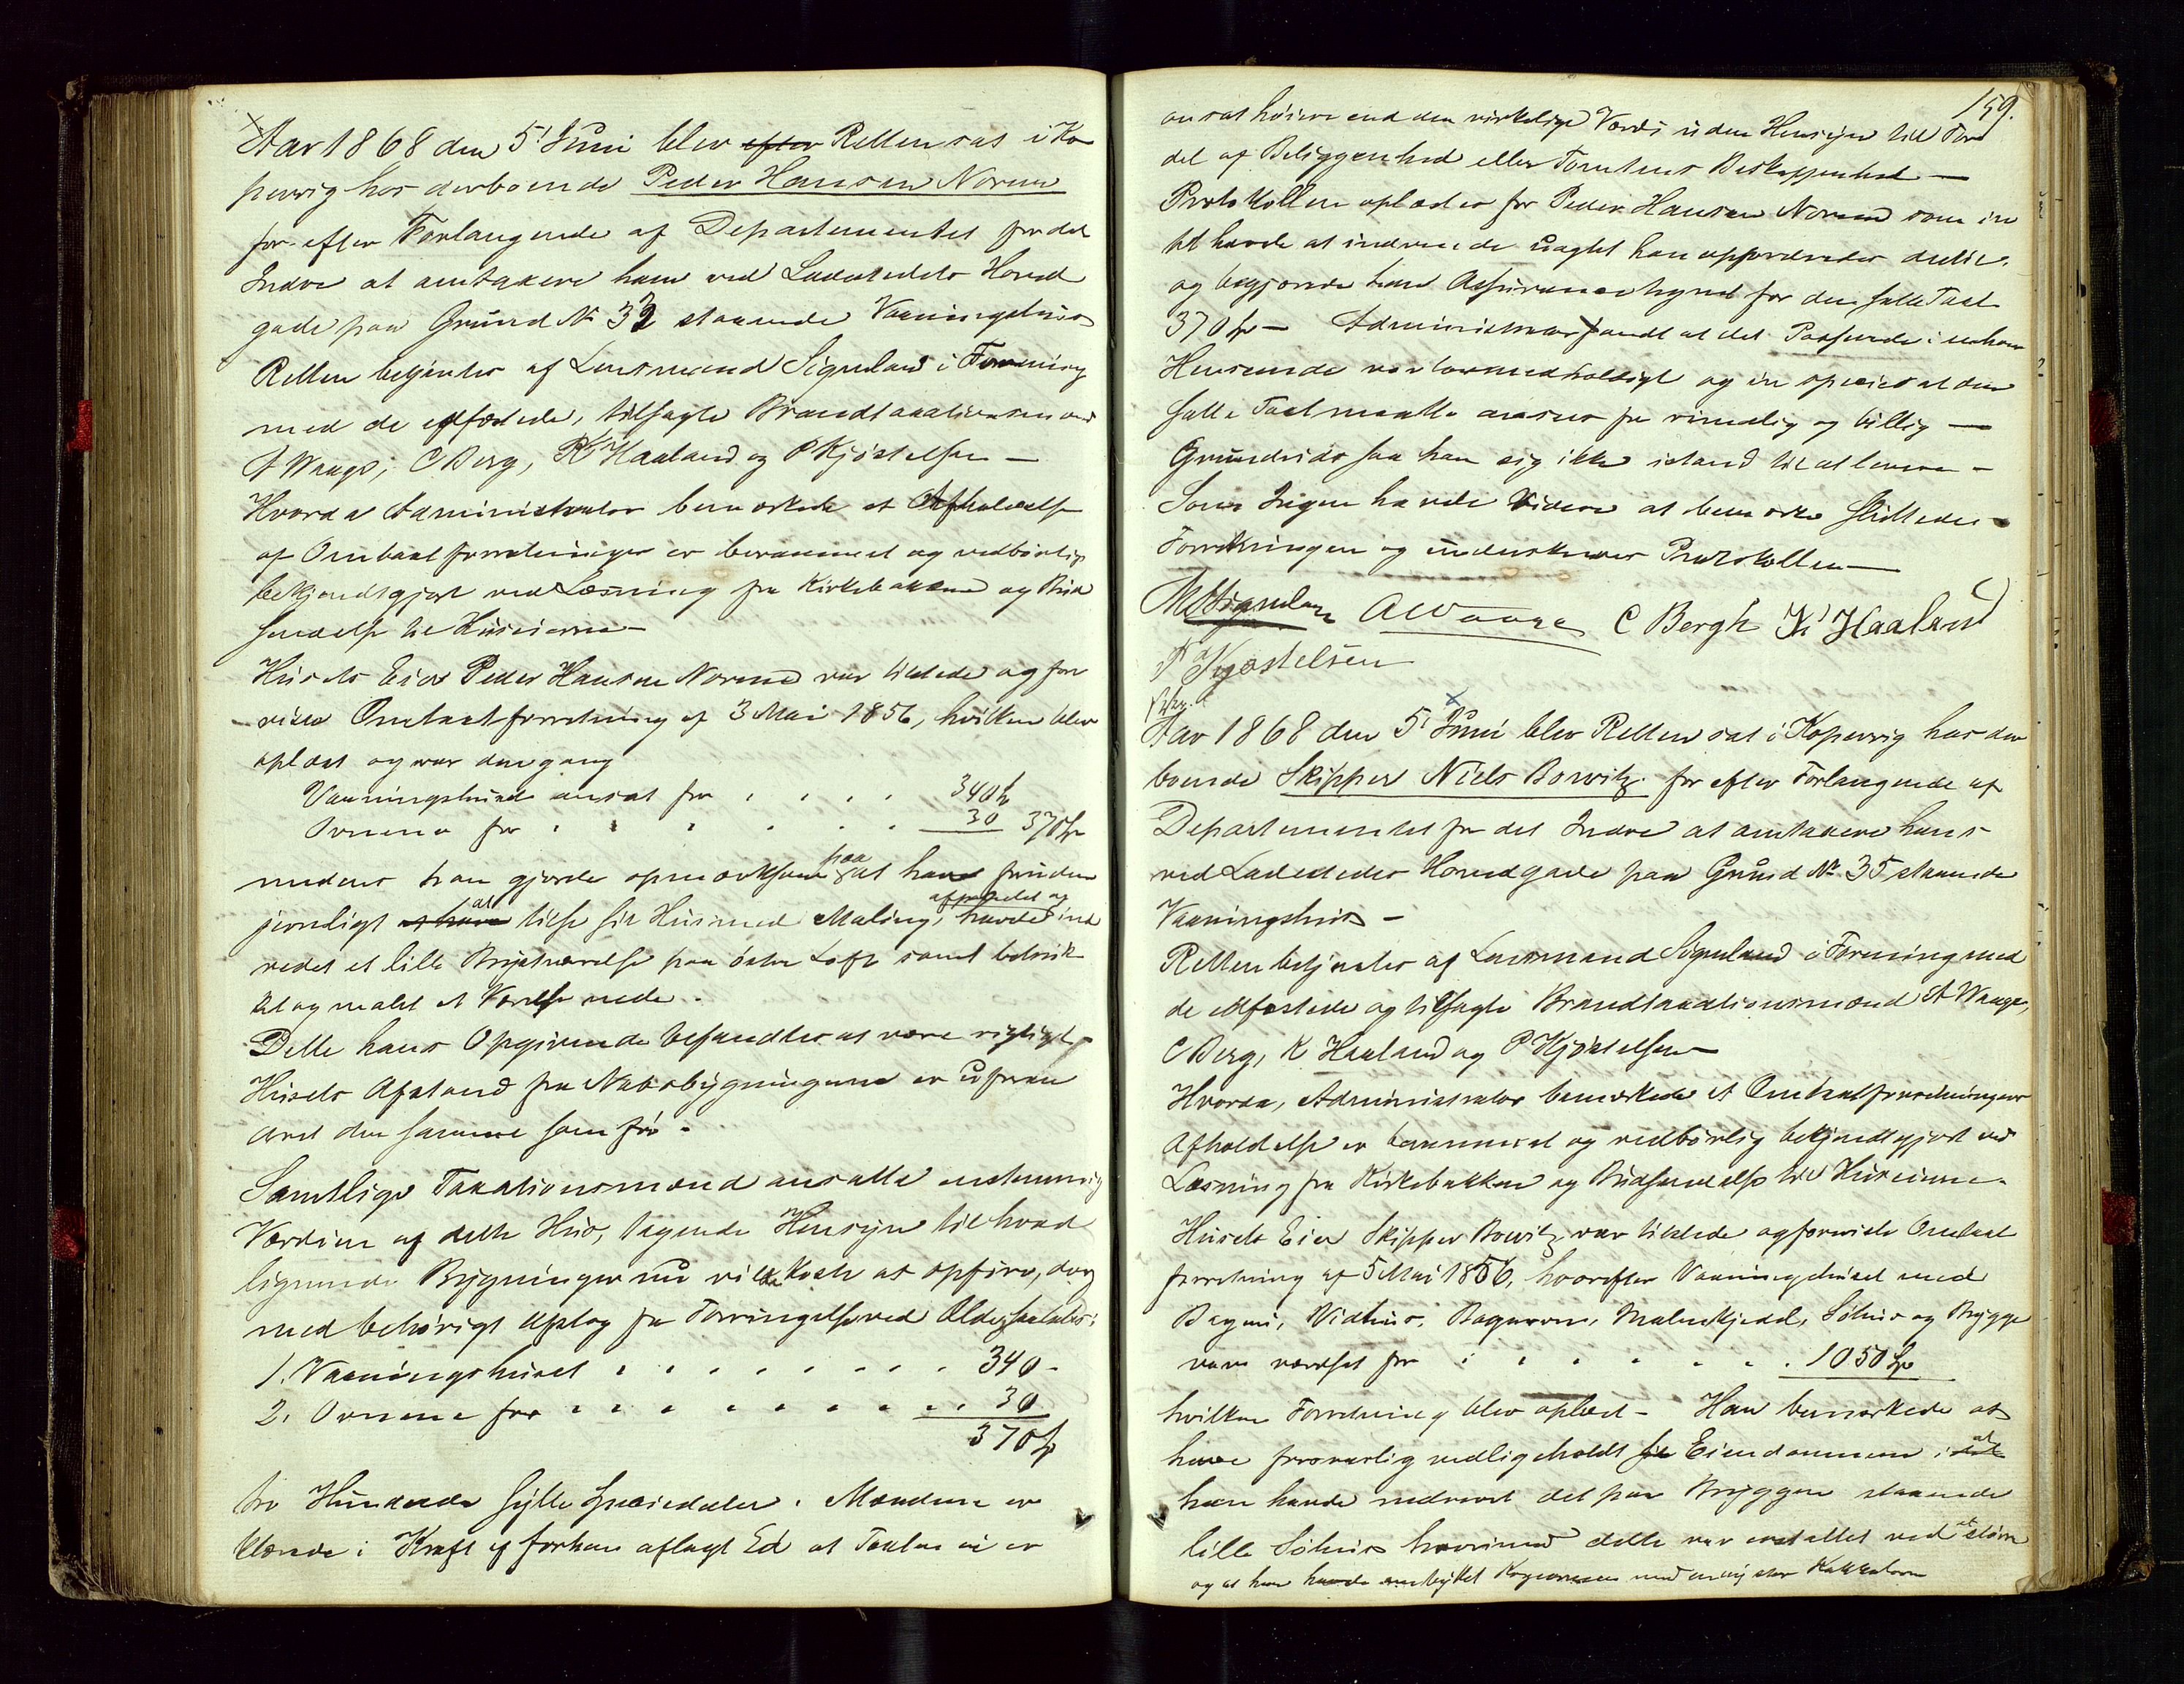 Aar 1868 den 5' Juni blev efter Retten sat i Ko
pervig hos derboende Peder Hansen Norem
for efter Forlangende af Departementet for det
Indre at omtaxere hans ved Ladestedets Hoved
gade paa Grund No 32 staaende Vaaningshus
Retten betjentes af Lensmand Signeland i Forening
med de edfæstede, tilsagte Brandtaxationsmænd
A Waage, C Berg, K Haaland og P Kjøstelsen —
Hvorda Administrator bemærkede at Afholdelse
af Omtaxtforretninger er berammet og vedbørlig
bekjendtgjort ved Læsning fra Kirkebakken og Bud
sendelse til Huseierne —
Husets Eier Peder Hansen Norem var tilstede og fore
viste Omtaxtforretning af 3 Mai 1856, hvilken blev
oplæst og var dengang
Vaaningshuset ansat for . . . . 340
Ovnene for . . . . . . 30 370
medens han gjorde opmærksom paa at have foruden
jevnligt at have at tilse sit Hus med Maling, havde afpanelet og ind
redet et lille Værelse paa østre Loft samt betrukk
et og malet et Værelse nede.
Dette hans Opgivende befandtes at være rigtigt
Husets Afstand fra Nabobygningerne er uforan
dret den samme som før.
Samtlige Taxationsmænd ansatte enstemmig
Værdien af dette Hus, tagende Hensyn til hvad
lignende Bygninger nu vilde koste at opføre, dog
med behørigt Afslag for Forringelse ved Ælde, saaledes:
1. Vaaningshuset . . . . . . . . 340 -
2. Ovnene for . . . . . . . . . 30
370
tre Hundrede sytti Speciedaler. Mændene er
klærede i Kraft af forhen aflagt Ed at Taxten ei er
159.
ansat høiere end den virkelige Værdi uden Hensyn til For
del af Beliggenhed eller Tomtens Beskaffenhed —
Protokollen oplæstes for Peder Hansen Norem som in
tet havde at indvende uagtet han opfordredes dertil,
og begjærede han Assurance tegnet for den fulde Taxt
370 — Administrator fandt at det Passerede i enhver
Henseende var lovmedholdigt og in specie at den
satte Taxt maatte ansees for rimelig og billig —
Grundrids saa han sig ikke istand til at levere —
Som Ingen havde videre at bemærke sluttedes
Forretningen og underskreves Protokollen —
Signeland A Waage C Bergh K Haaland
P Kjøstelsen
Aar 1868 den 5' Juni blev Retten sat i Kopervig hos der
boende Skipper Niels Bowitz for efter Forlangende af
Departementet for det Indre at omtaxere hans
ved Ladestedets Hovedgade paa Grund No 35 staaende
Vaaningshus —
Retten betjentes af Lensmand Signeland i Forening med
de edfæstede og tilsagte Brandtaxationsmænd A Waage,
C Berg, K Haaland og P Kjøstelsen —
Hvorda, Administrator bemærkede at Omtaxtforretningers
Afholdelse er berammet og vedbørlig bekjendtgjort ved
Læsning fra Kirkebakken og Budsendelse til Huseierne.
Husets Eier Skipper Bowitz var tilstede og foreviste Omtaxt
forretning af 5 Mai 1856, hvorefter Vaaningshuset med
Vedhus, Bagerovn, Søhus og Brygge
vare værdsat for . . . . . . 1050
hvilken Forretning blev oplæst — Han bemærkede at
have forsvarlig vedligeholdt sin Eiendommen, at
han havde nedrevet det paa Bryggen staaende
lille Søhus hvorimod dette var erstattet ved et større
og at han havde ombyttet Kogeovnen med en ny stor Kakkelovn